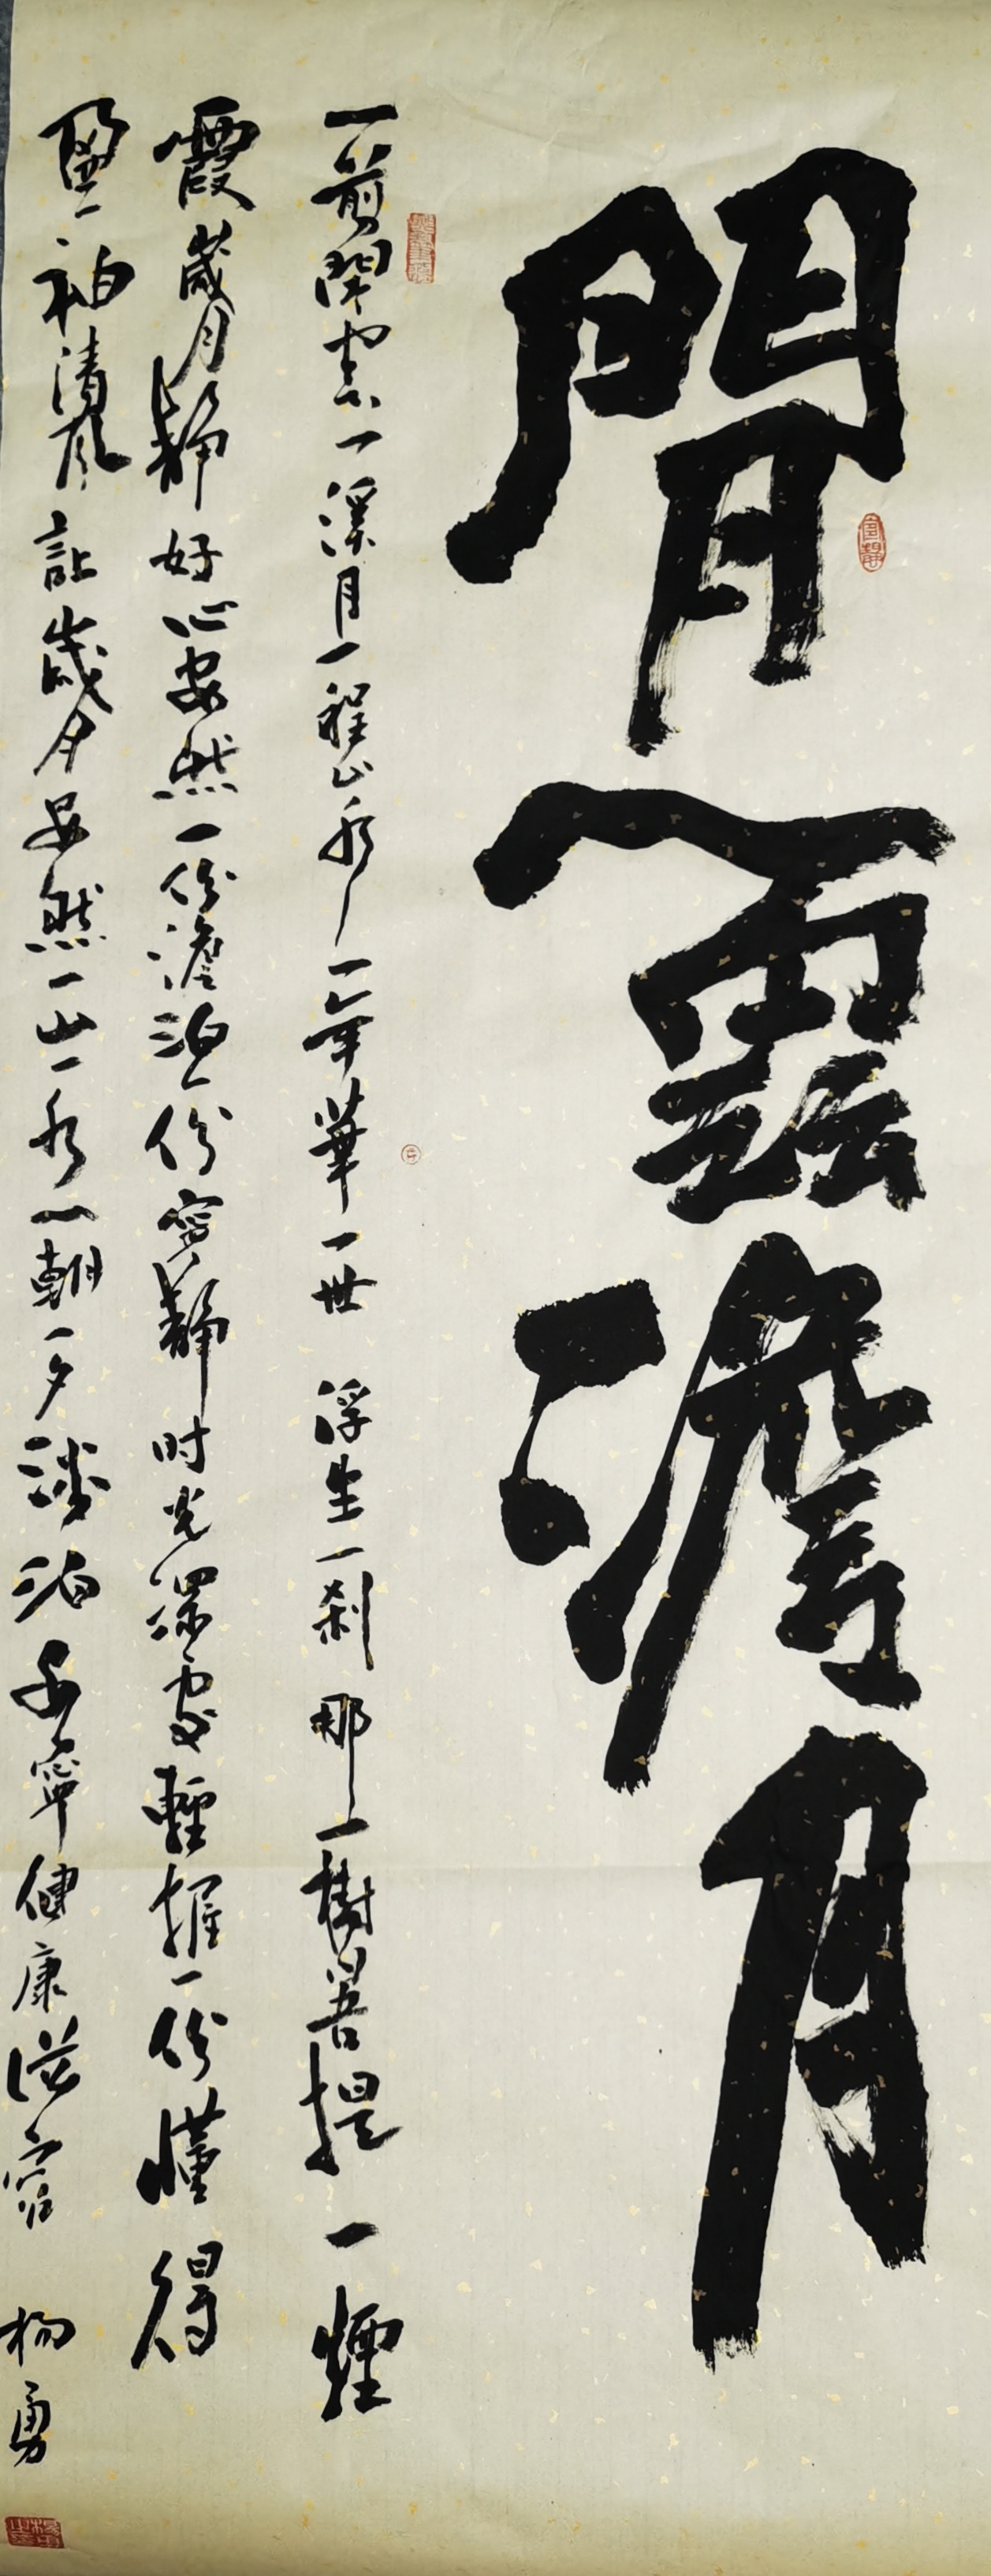 閒雲澹月
一剪閑雲一溪月一程山水一年華一世浮生一刹那一樹菩提一煙
霞歲月靜好心安然一份澹泊一份寧靜时光深處輕握一份懂得
盈一袖清風讓歲月安然一山一水一朝一夕淡泊安寧健康從容
杨勇